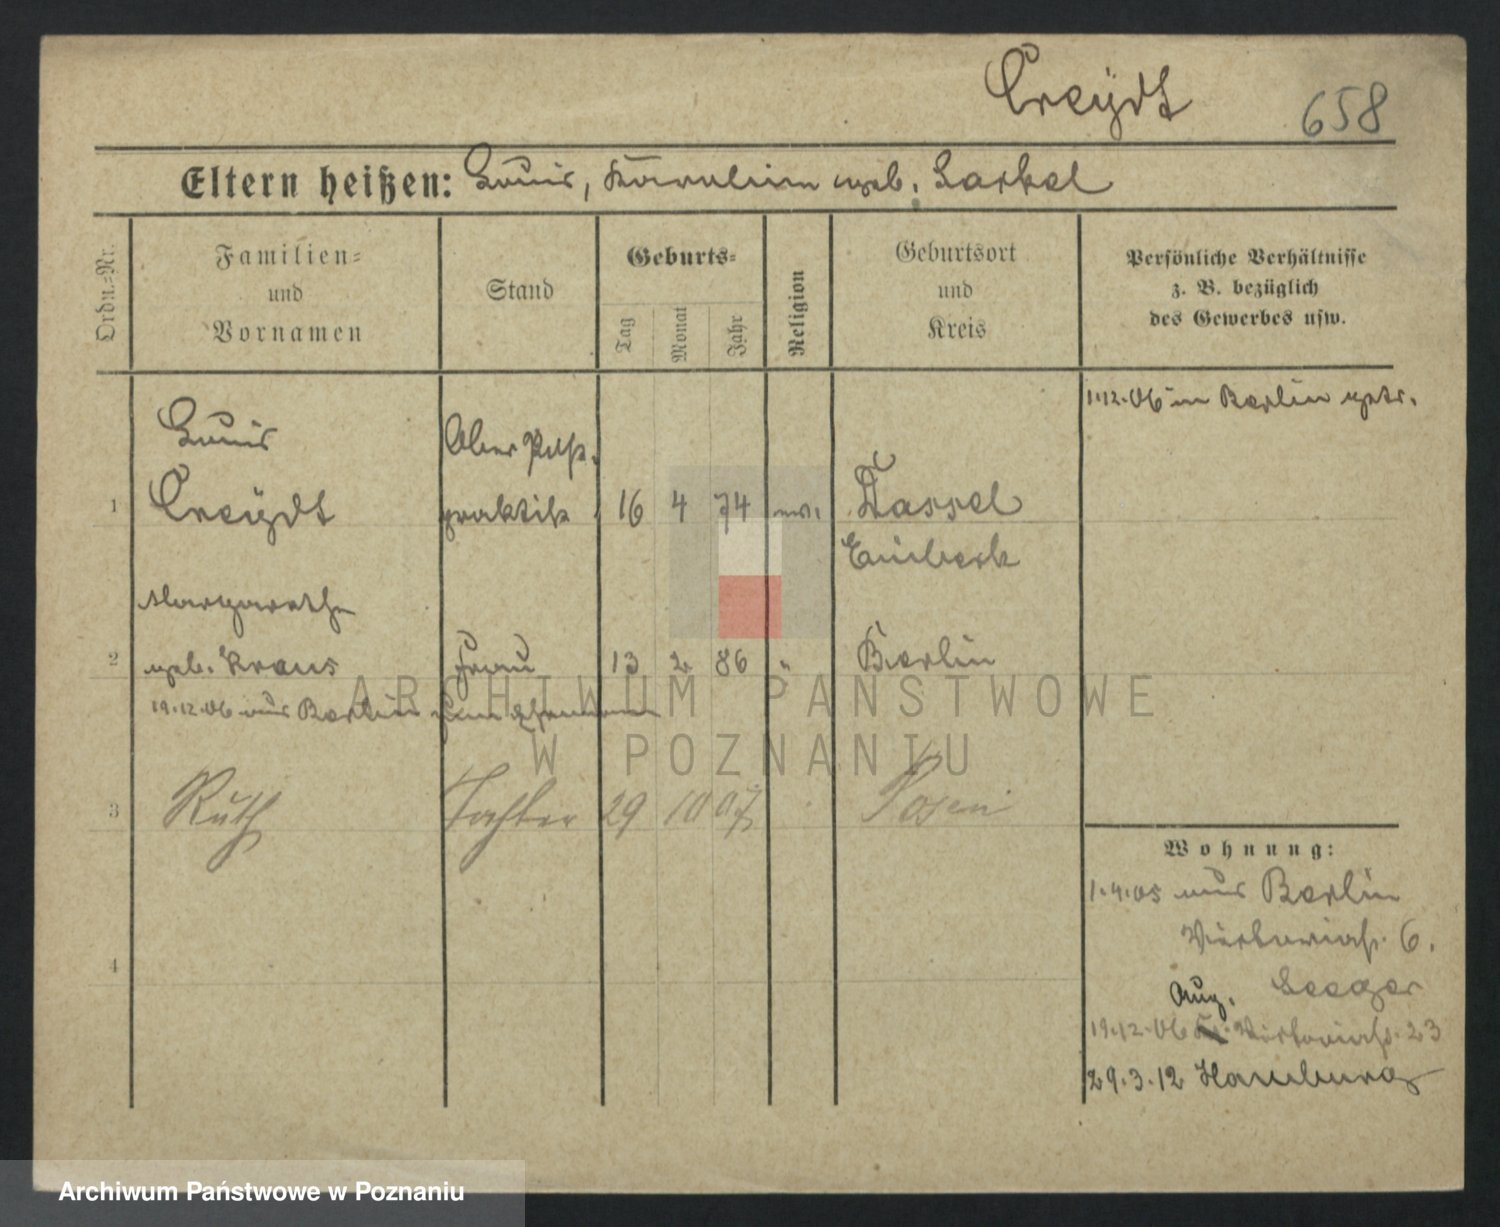 Creÿdt 658
Eltern heißen: Louis, Karolin geb.
Ordn.-Nr.
Familien- und Vornamen
Stand
Geburts-
Tag
Monat
Jahr
Religion
Geburtsort und Kreis
Persönliche Verhältnisse
z. B. bezüglich
des Gewerbes usw.
1·12·06 in Berlin getr.
Louis Ober Post-
1 Creÿdt praktik. 16 4 74 ev. Dassel
Einbeck
Margarethe
2 geb. Kraus Frau 13 2 86 " Berlin
19·12·06 aus Berlin zum Ehemann
3 Ruth Tochter 29 10 07 Posen
4
Wohnung:
1·4·05 aus Berlin
Viktoriastr. 6.
Seeger
Aug.
19·12·06 Viktoriastr. 23
29·3·12 Hamburg
ARCHIWUM PAŃSTWOWE
W POZNANIU
Archiwum Państwowe w Poznaniu